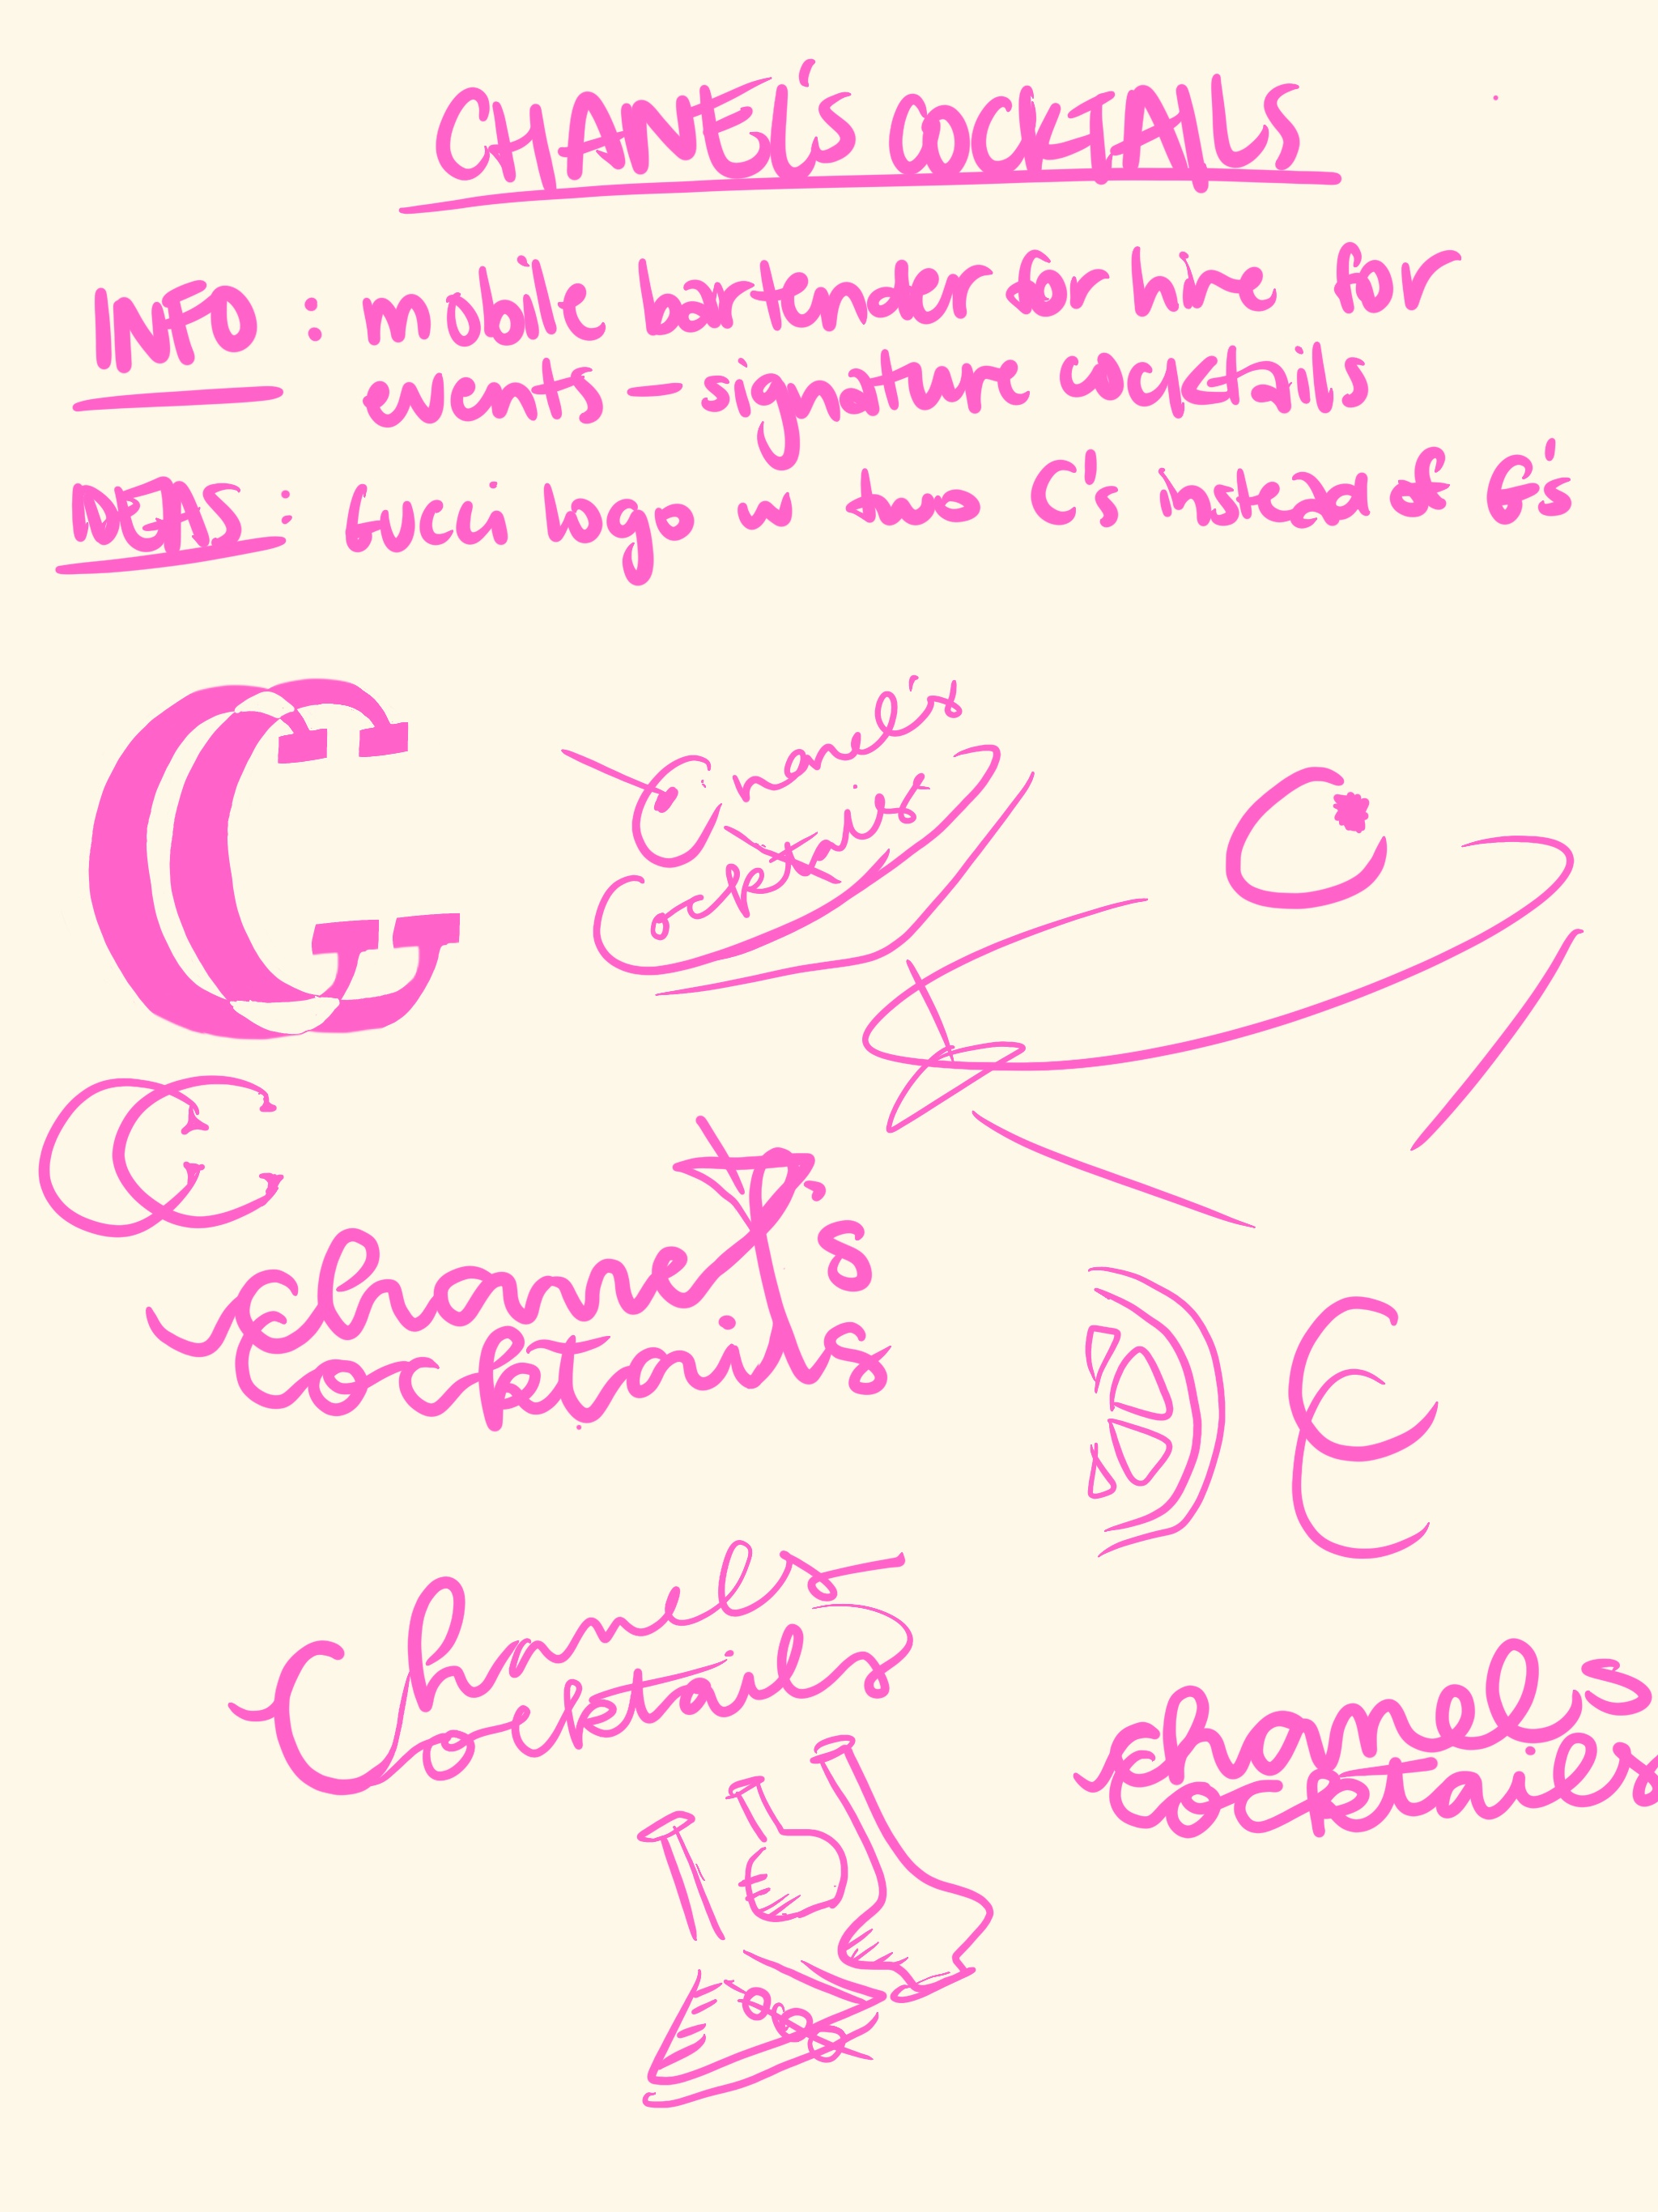 CHANEL's COCKTAILS
INFO : mobile bartender for hire for
events - signature cocktails
IDEAS : Gucci logo w/ two C's instead of G's
CC
Chanel's
cocktails
C
CC
chanel's
cocktails
CC
Chanels
cocktails
chanels
cocktails